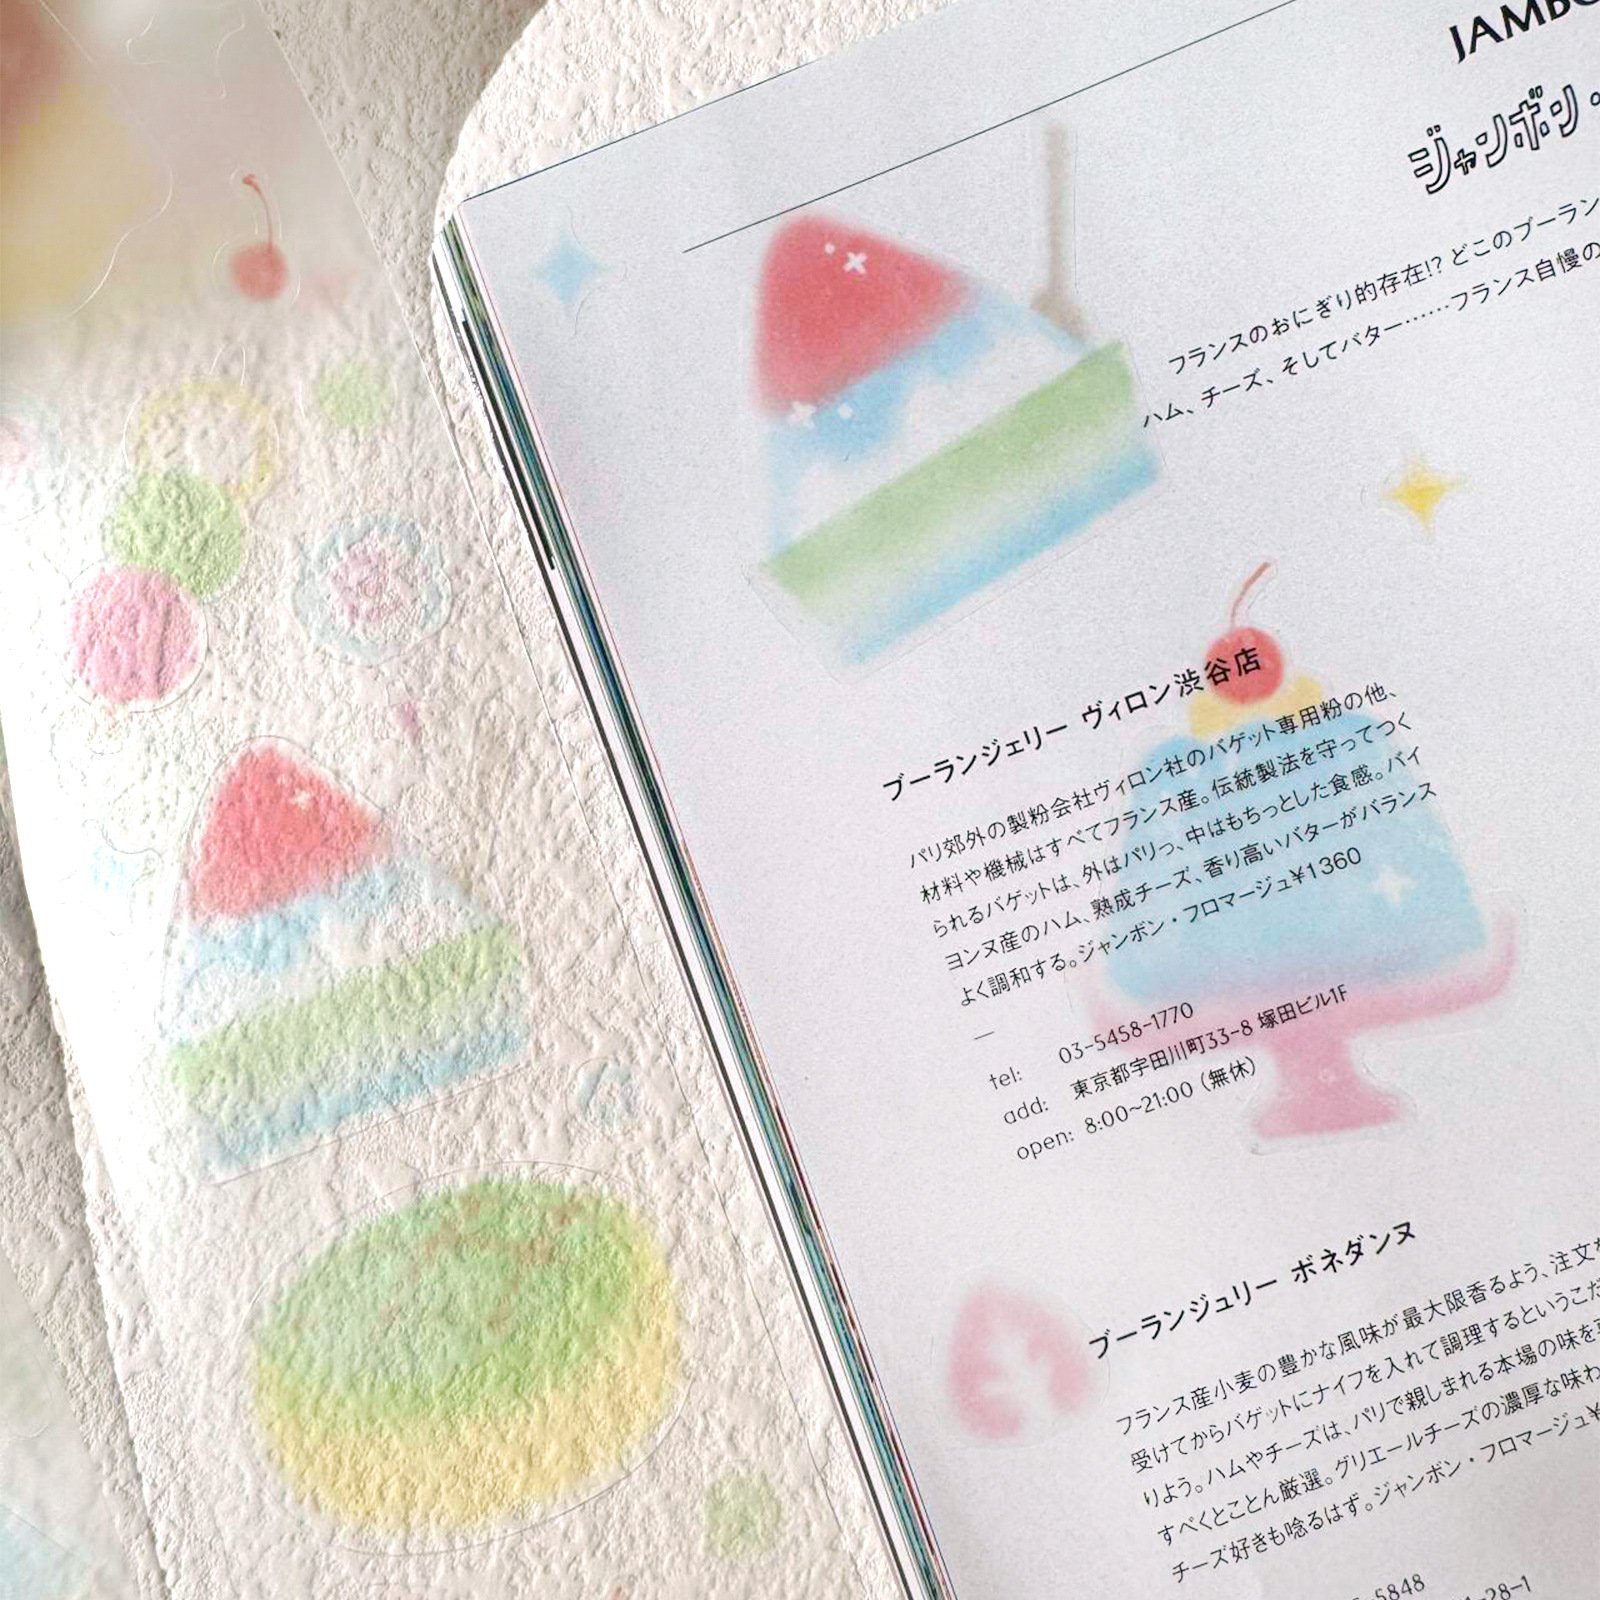 JAMBO
ジャンボン・
フランスのおにぎり的存在!? どこのブーラン
ハム、チーズ、そしてバター……フランス自慢の
ブーランジェリー ヴィロン渋谷店
パリ郊外の製粉会社ヴィロン社のバゲット専用粉の他、
材料や機械はすべてフランス産。伝統製法を守ってつく
られるバゲットは、外はパリっ、中はもちっとした食感。バイ
ヨンヌ産のハム、熟成チーズ、香り高いバターがバランス
よく調和する。ジャンボン・フロマージュ¥1360
—
tel: 03-5458-1770
add: 東京都宇田川町33-8 塚田ビル1F
open: 8:00~21:00 (無休)
ブーランジュリー ボネダンヌ
フランス産小麦の豊かな風味が最大限香るよう、注文を
受けてからバゲットにナイフを入れて調理するというこだ
りよう。ハムやチーズは、パリで親しまれる本場の味を
すべくとことん厳選。グリエールチーズの濃厚な味わ
チーズ好きも唸るはず。ジャンボン・フロマージュ¥
-5848
-28-1